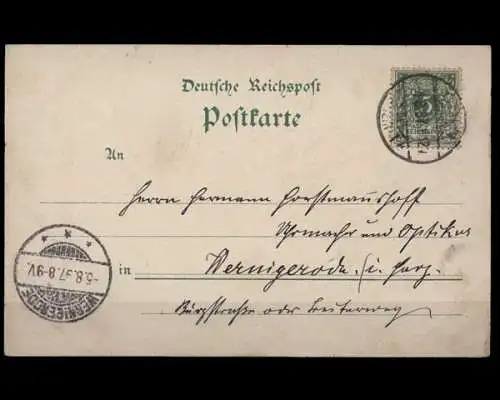 Deutsche Reichspost
Postkarte
An
Herrn Hermann Forstmannshoff
Uhrmacher und Optiker
in Wernigerode. i. Harz.
Burgstraße oder Breiteweg
WERNIGERODE
-5.8.97.8-9V.
5